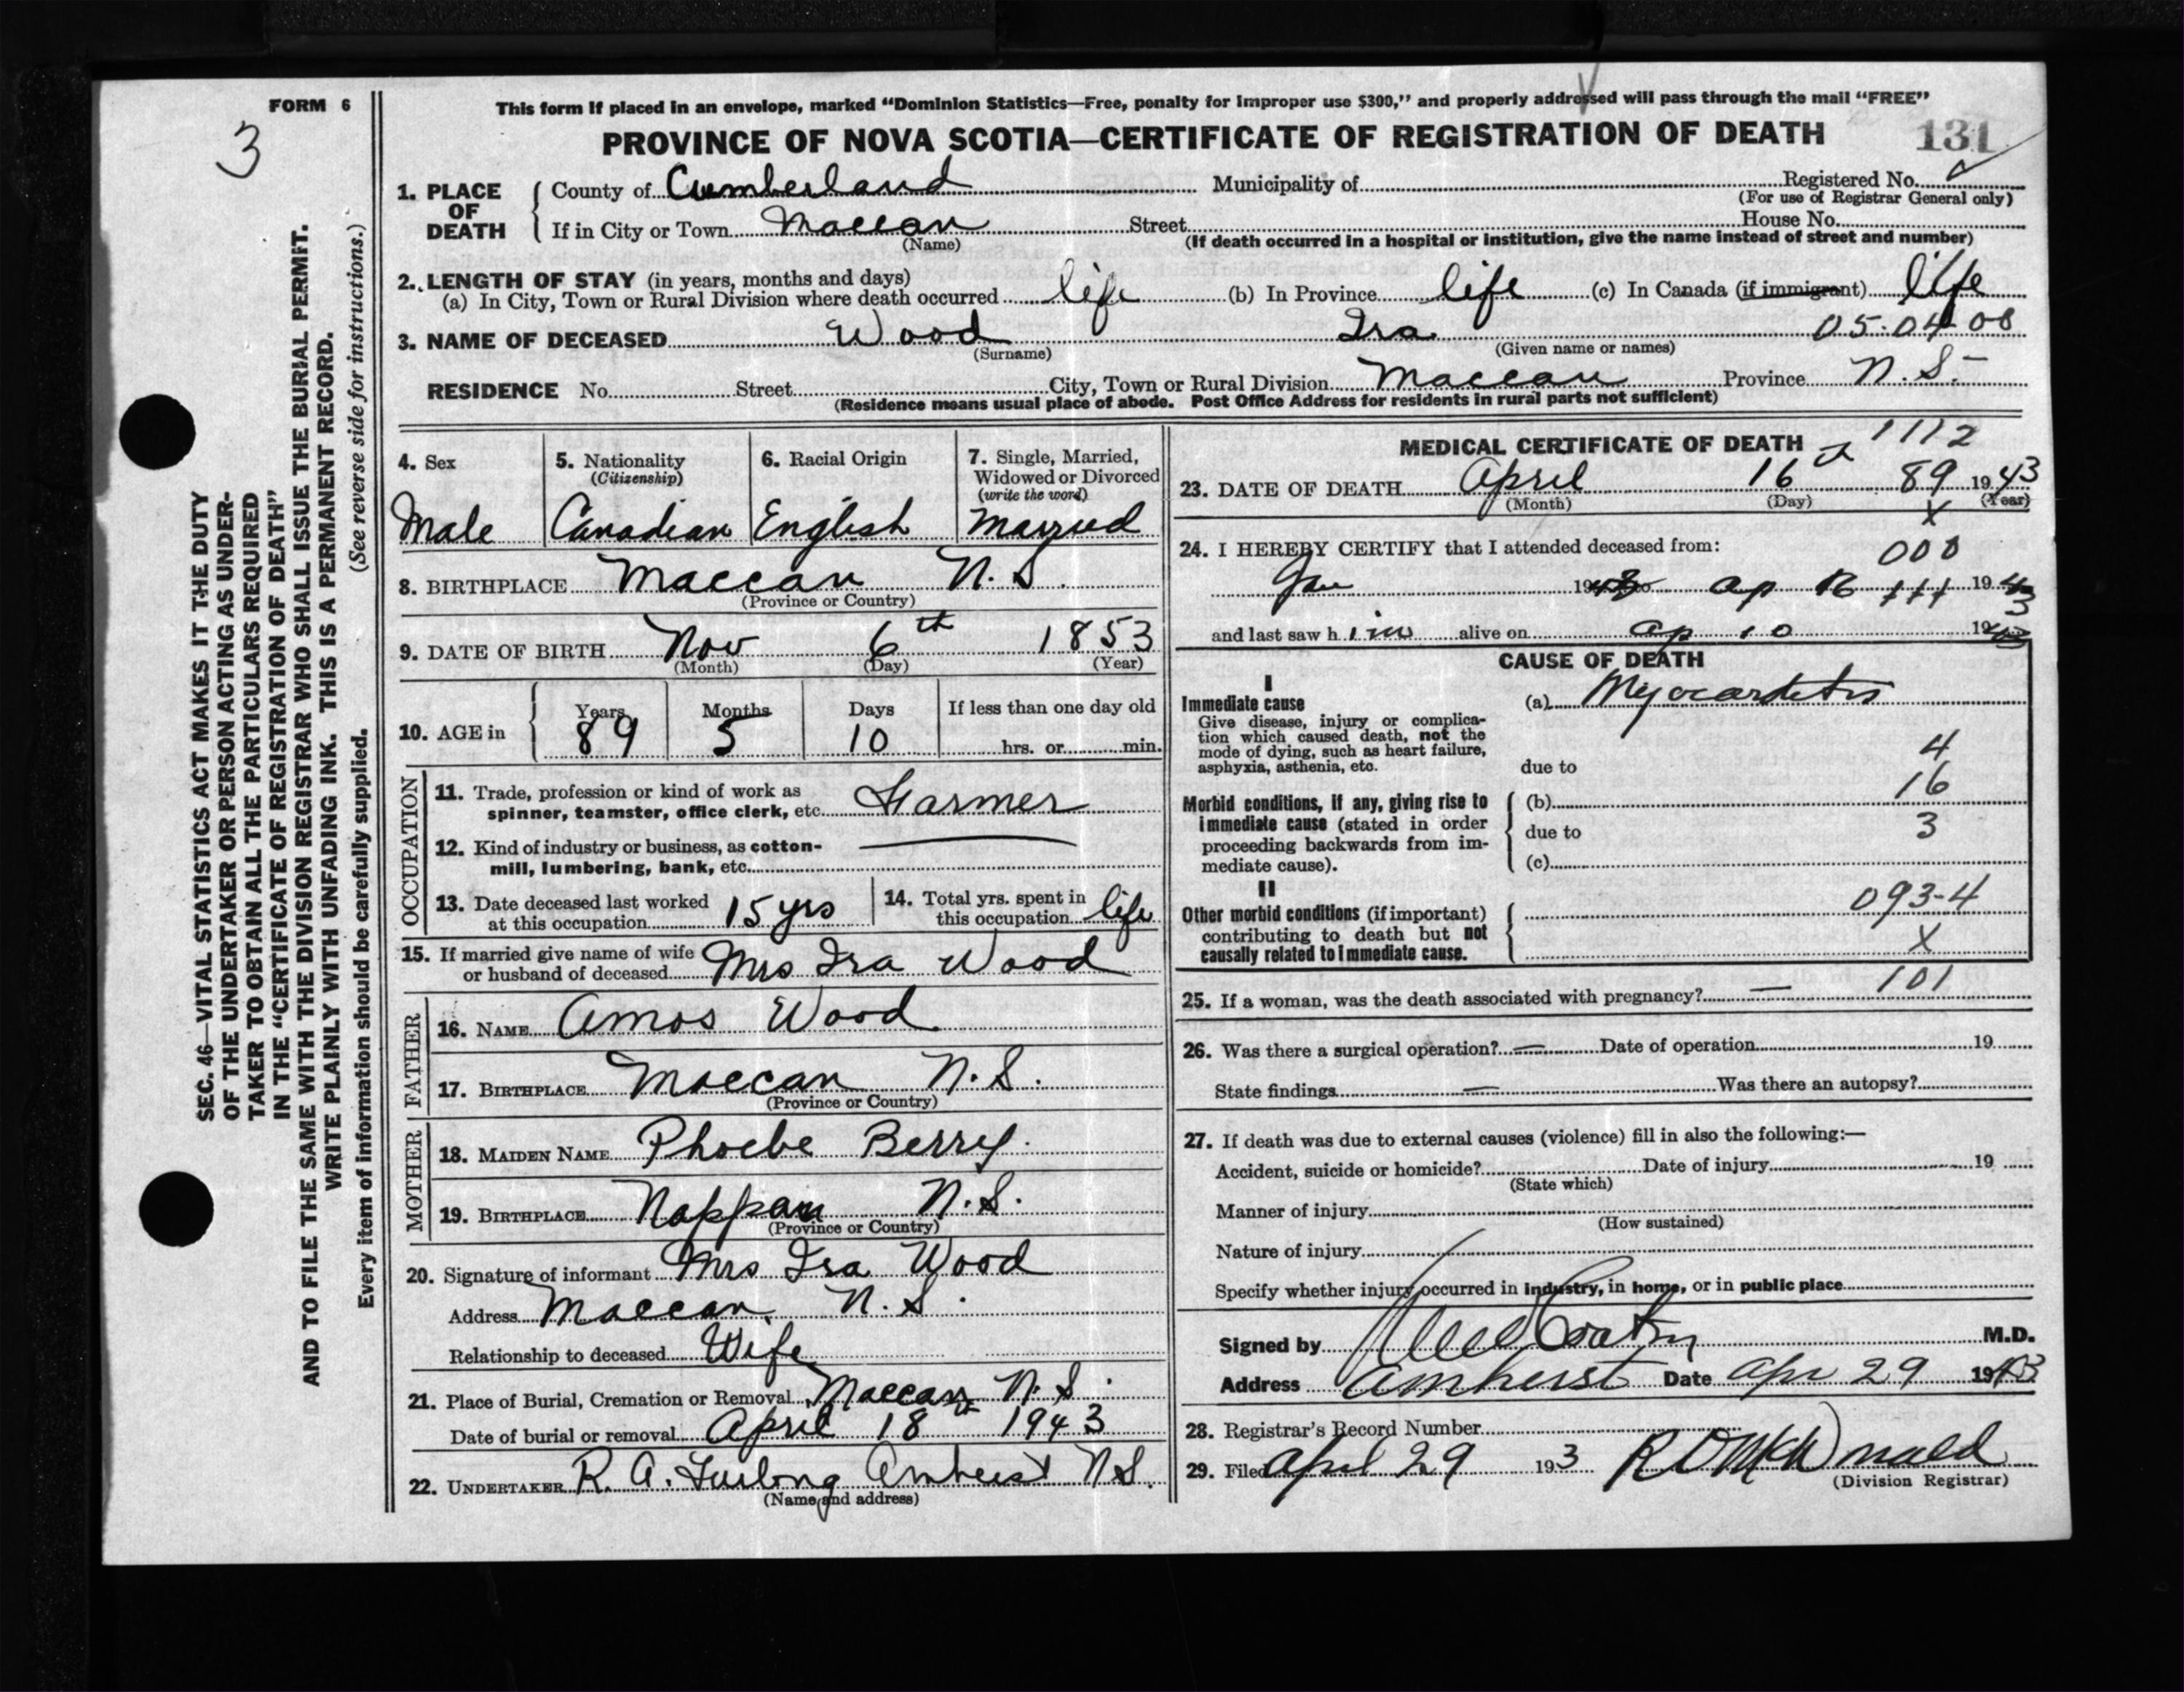 FORM 6
3
This form if placed in an envelope, marked “Dominion Statistics—Free, penalty for improper use $300,” and properly addressed will pass through the mail “FREE”
PROVINCE OF NOVA SCOTIA—CERTIFICATE OF REGISTRATION OF DEATH 131
SEC. 46—VITAL STATISTICS ACT MAKES IT THE DUTY
OF THE UNDERTAKER OR PERSON ACTING AS UNDER-
TAKER TO OBTAIN ALL THE PARTICULARS REQUIRED
IN THE “CERTIFICATE OF REGISTRATION OF DEATH”
AND TO FILE THE SAME WITH THE DIVISION REGISTRAR WHO SHALL ISSUE THE BURIAL PERMIT.
WRITE PLAINLY WITH UNFADING INK. THIS IS A PERMANENT RECORD.
Every item of information should be carefully supplied. (See reverse side for instructions.)
1. PLACE OF DEATH
County of Cumberland Municipality of Registered No.
(For use of Registrar General only)
If in City or Town Maccan Street House No.
(Name) (If death occurred in a hospital or institution, give the name instead of street and number)
2. LENGTH OF STAY (in years, months and days)
(a) In City, Town or Rural Division where death occurred life (b) In Province life (c) In Canada (if immigrant) life
3. NAME OF DECEASED Wood Ira 05.04 00
(Surname) (Given name or names)
RESIDENCE No. Street City, Town or Rural Division Maccan Province N.S.
(Residence means usual place of abode. Post Office Address for residents in rural parts not sufficient)
4. Sex
Male
5. Nationality
(Citizenship)
Canadian
6. Racial Origin
English
7. Single, Married,
Widowed or Divorced
(write the word)
Married
8. BIRTHPLACE Maccan N.S.
(Province or Country)
9. DATE OF BIRTH Nov 6th 1853
(Month) (Day) (Year)
10. AGE in Years Months Days If less than one day old
89 5 10 hrs. or min.
OCCUPATION
11. Trade, profession or kind of work as
spinner, teamster, office clerk, etc. Farmer
12. Kind of industry or business, as cotton-
mill, lumbering, bank, etc. —
13. Date deceased last worked
at this occupation 15 yrs
14. Total yrs. spent in
this occupation life
15. If married give name of wife
or husband of deceased Mrs Ira Wood
FATHER
16. NAME Amos Wood
17. BIRTHPLACE Maccan N.S.
(Province or Country)
MOTHER
18. MAIDEN NAME Phoebe Berry.
19. BIRTHPLACE Nappan N.S.
(Province or Country)
20. Signature of informant Mrs Ira Wood
Address Maccan, N.S.
Relationship to deceased Wife
21. Place of Burial, Cremation or Removal Maccan N.S.
Date of burial or removal April 18th 1943
22. UNDERTAKER R. A. Furlong Amherst N.S.
(Name and address)
MEDICAL CERTIFICATE OF DEATH 1112
23. DATE OF DEATH April 16th 89 1943
(Month) (Day) (Year)
X
24. I HEREBY CERTIFY that I attended deceased from: 000
Jan 1943 to Ap 111 1943
and last saw him alive on Ap 10 1943
CAUSE OF DEATH
I
Immediate cause
Give disease, injury or complica-
tion which caused death, not the
mode of dying, such as heart failure,
asphyxia, asthenia, etc.
(a) Myocarditis
4
due to
Morbid conditions, if any, giving rise to
immediate cause (stated in order
proceeding backwards from im-
mediate cause).
(b) 16
due to 3
(c)
II
Other morbid conditions (if important)
contributing to death but not
causally related to immediate cause.
093-4
X
25. If a woman, was the death associated with pregnancy? — 101
26. Was there a surgical operation? — Date of operation 19
State findings — Was there an autopsy?
27. If death was due to external causes (violence) fill in also the following:—
Accident, suicide or homicide? Date of injury 19
(State which)
Manner of injury
(How sustained)
Nature of injury
Specify whether injury occurred in industry, in home, or in public place
Signed by M.D.
Address Amherst Date Apr 29 1943
28. Registrar's Record Number
29. Filed April 29 193 McDonald
(Division Registrar)